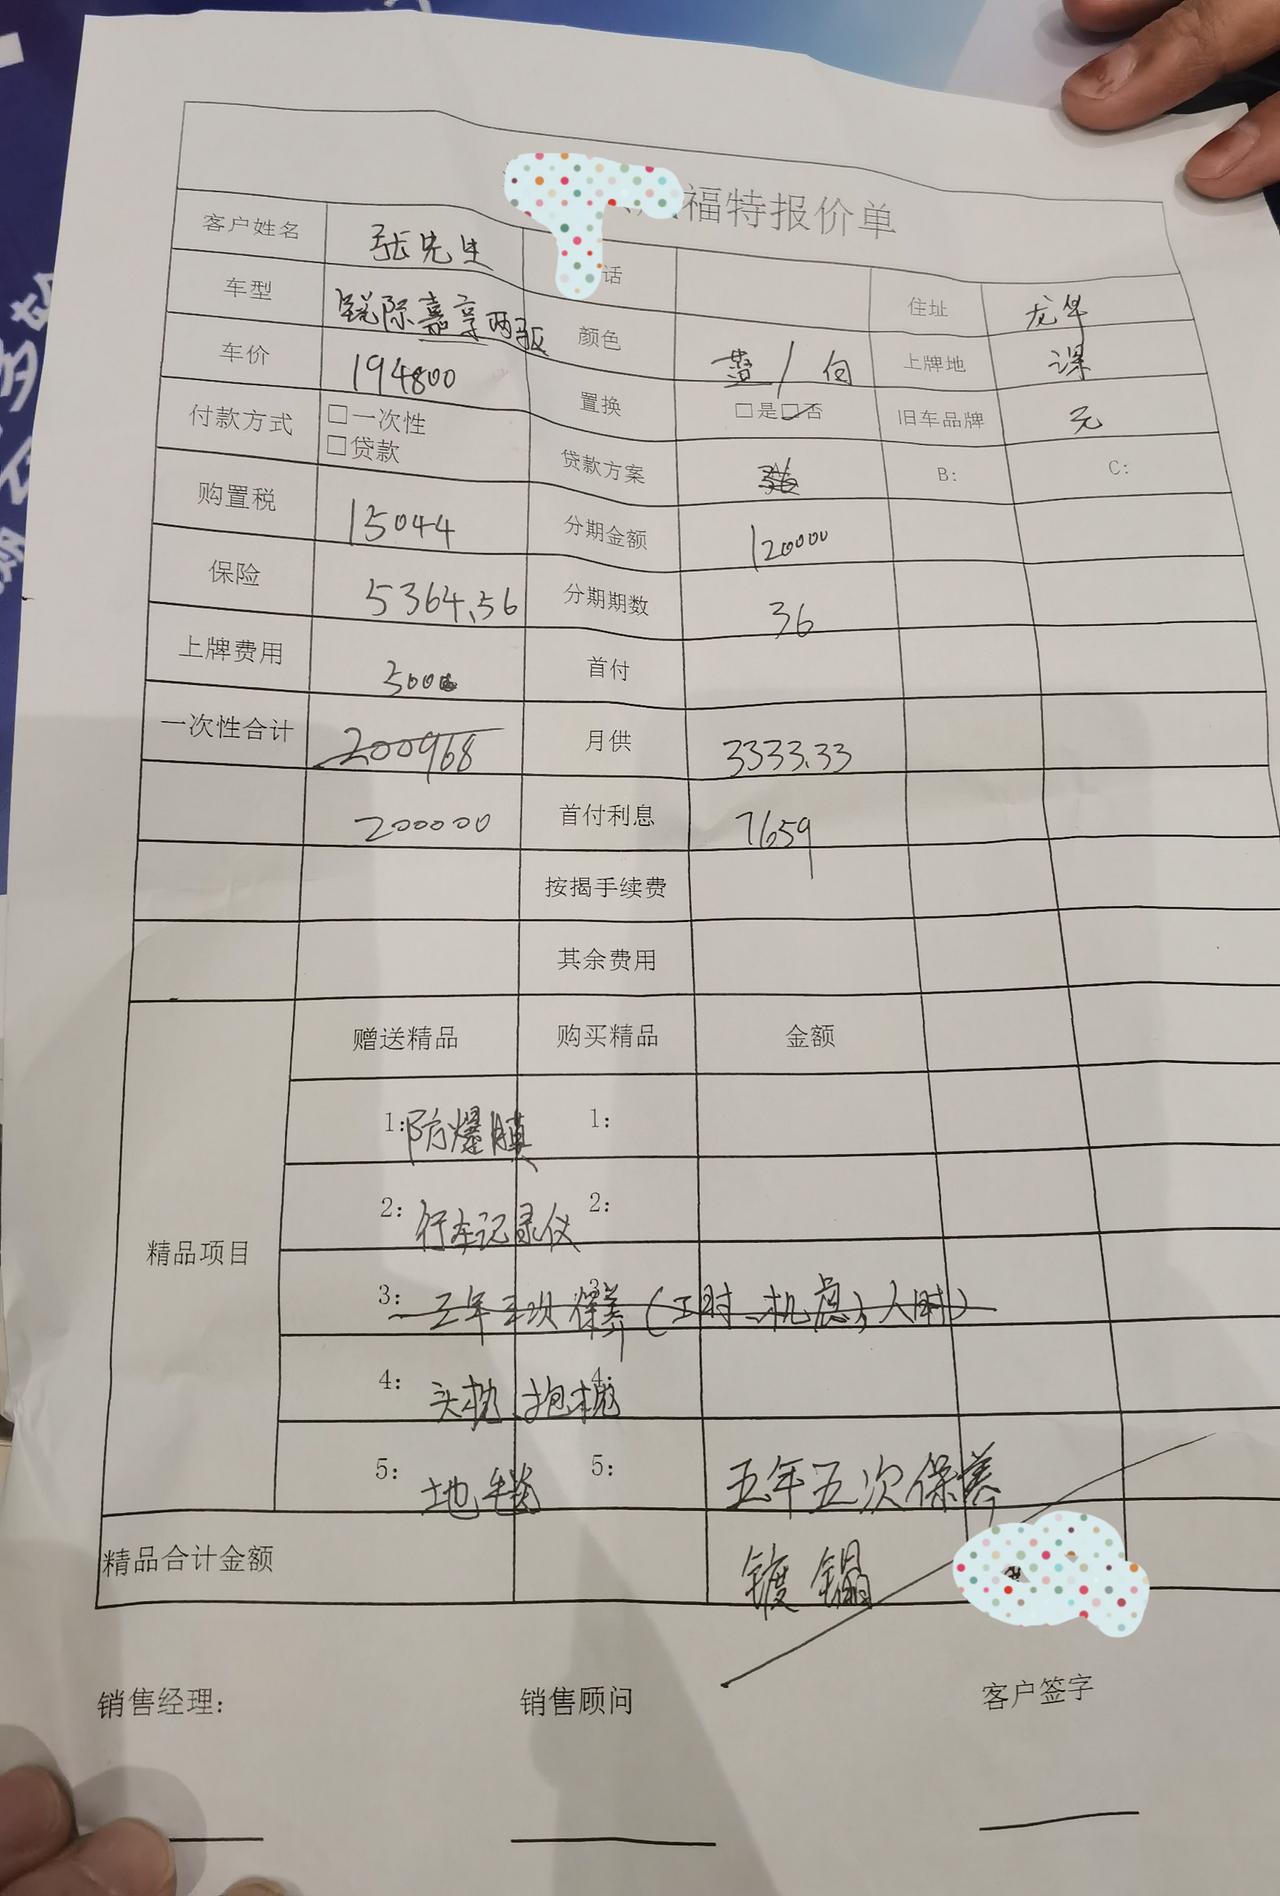 福特报价单
客户姓名 张先生 话 住址 龙华
车型 锐际嘉享两驱 颜色 蓝/白 上牌地 深
车价 194800 置换 □是☑否 旧车品牌 无
付款方式 □一次性 □贷款 贷款方案 B: C:
购置税 15044 分期金额 120000
保险 5364.56 分期期数 36
上牌费用 500 首付
一次性合计 200968 月供 3333.33
200000 首付利息 7659
按揭手续费
其余费用
精品项目 赠送精品 购买精品 金额
1:防爆膜 1:
2:行车记录仪 2:
3:五年三次保养(工时、机滤,人时) 3:
4:头枕、抱枕 4:
5:地毯 5: 五年五次保养
精品合计金额 镀
销售经理: 销售顾问 客户签字